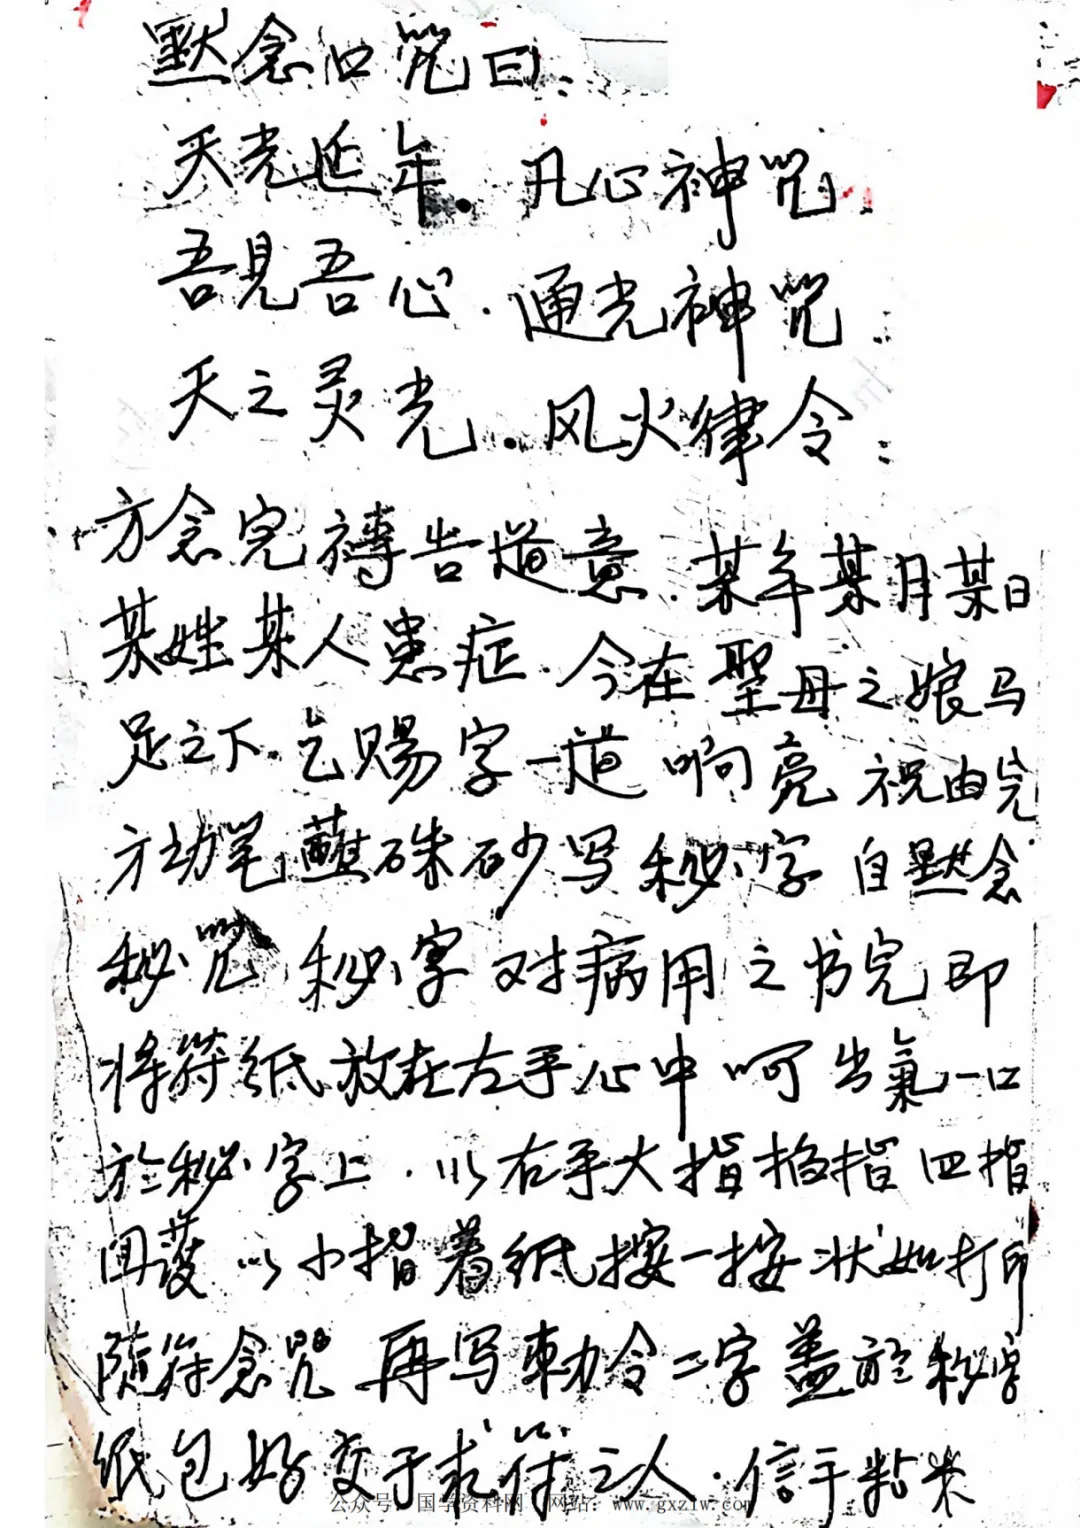 默念口咒曰：
天光延年．凡心神咒．
吾見吾心．通光神咒．
天之灵光．风火律令：
方念完禱告道意．某年某月某日
某姓某人患症．今在聖母之娘马
足之下．乞赐字一道 响亮 祝由完
方动笔蘸硃砂写秘字 自默念
秘咒 秘字对病用之书完即
将符纸放在左手心中 呵出氣一口
於秘字上．以右手大指掐指 四指
围護 以小指着纸按一按 状如打印
随符念咒 再写勅令二字盖於秘字
纸包好交于求符之人．信手粘来
公众号：国学资料网 网站：www.gxzlw.com